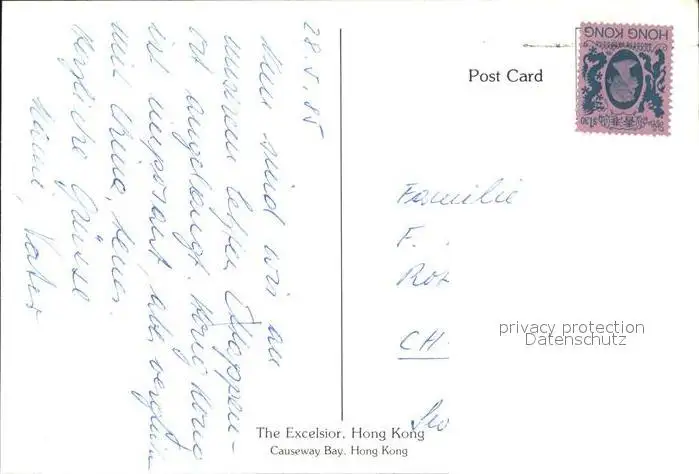 28.5.85
Nun sind wir an
unserem letzten Etappen-
ort angelangt. Hong Kong
ist imposant, aber verglichen
mit China, teuer.
Herzliche Grüsse
Vater
Post Card
HONG KONG
$1.30
Familie
F.
CH
privacy protection
Datenschutz
The Excelsior, Hong Kong
Causeway Bay, Hong Kong